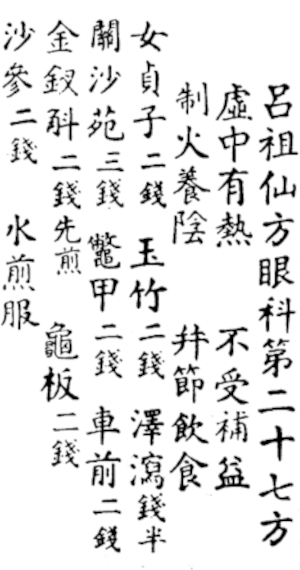 呂祖仙方眼科第二十七方
虛中有熱 不受補益
制火養陰 幷節飲食
女貞子二錢 玉竹二錢 澤瀉錢半
關沙苑三錢 鼈甲二錢 車前二錢
金釵斛二錢先煎 龜板二錢
沙參二錢 水煎服